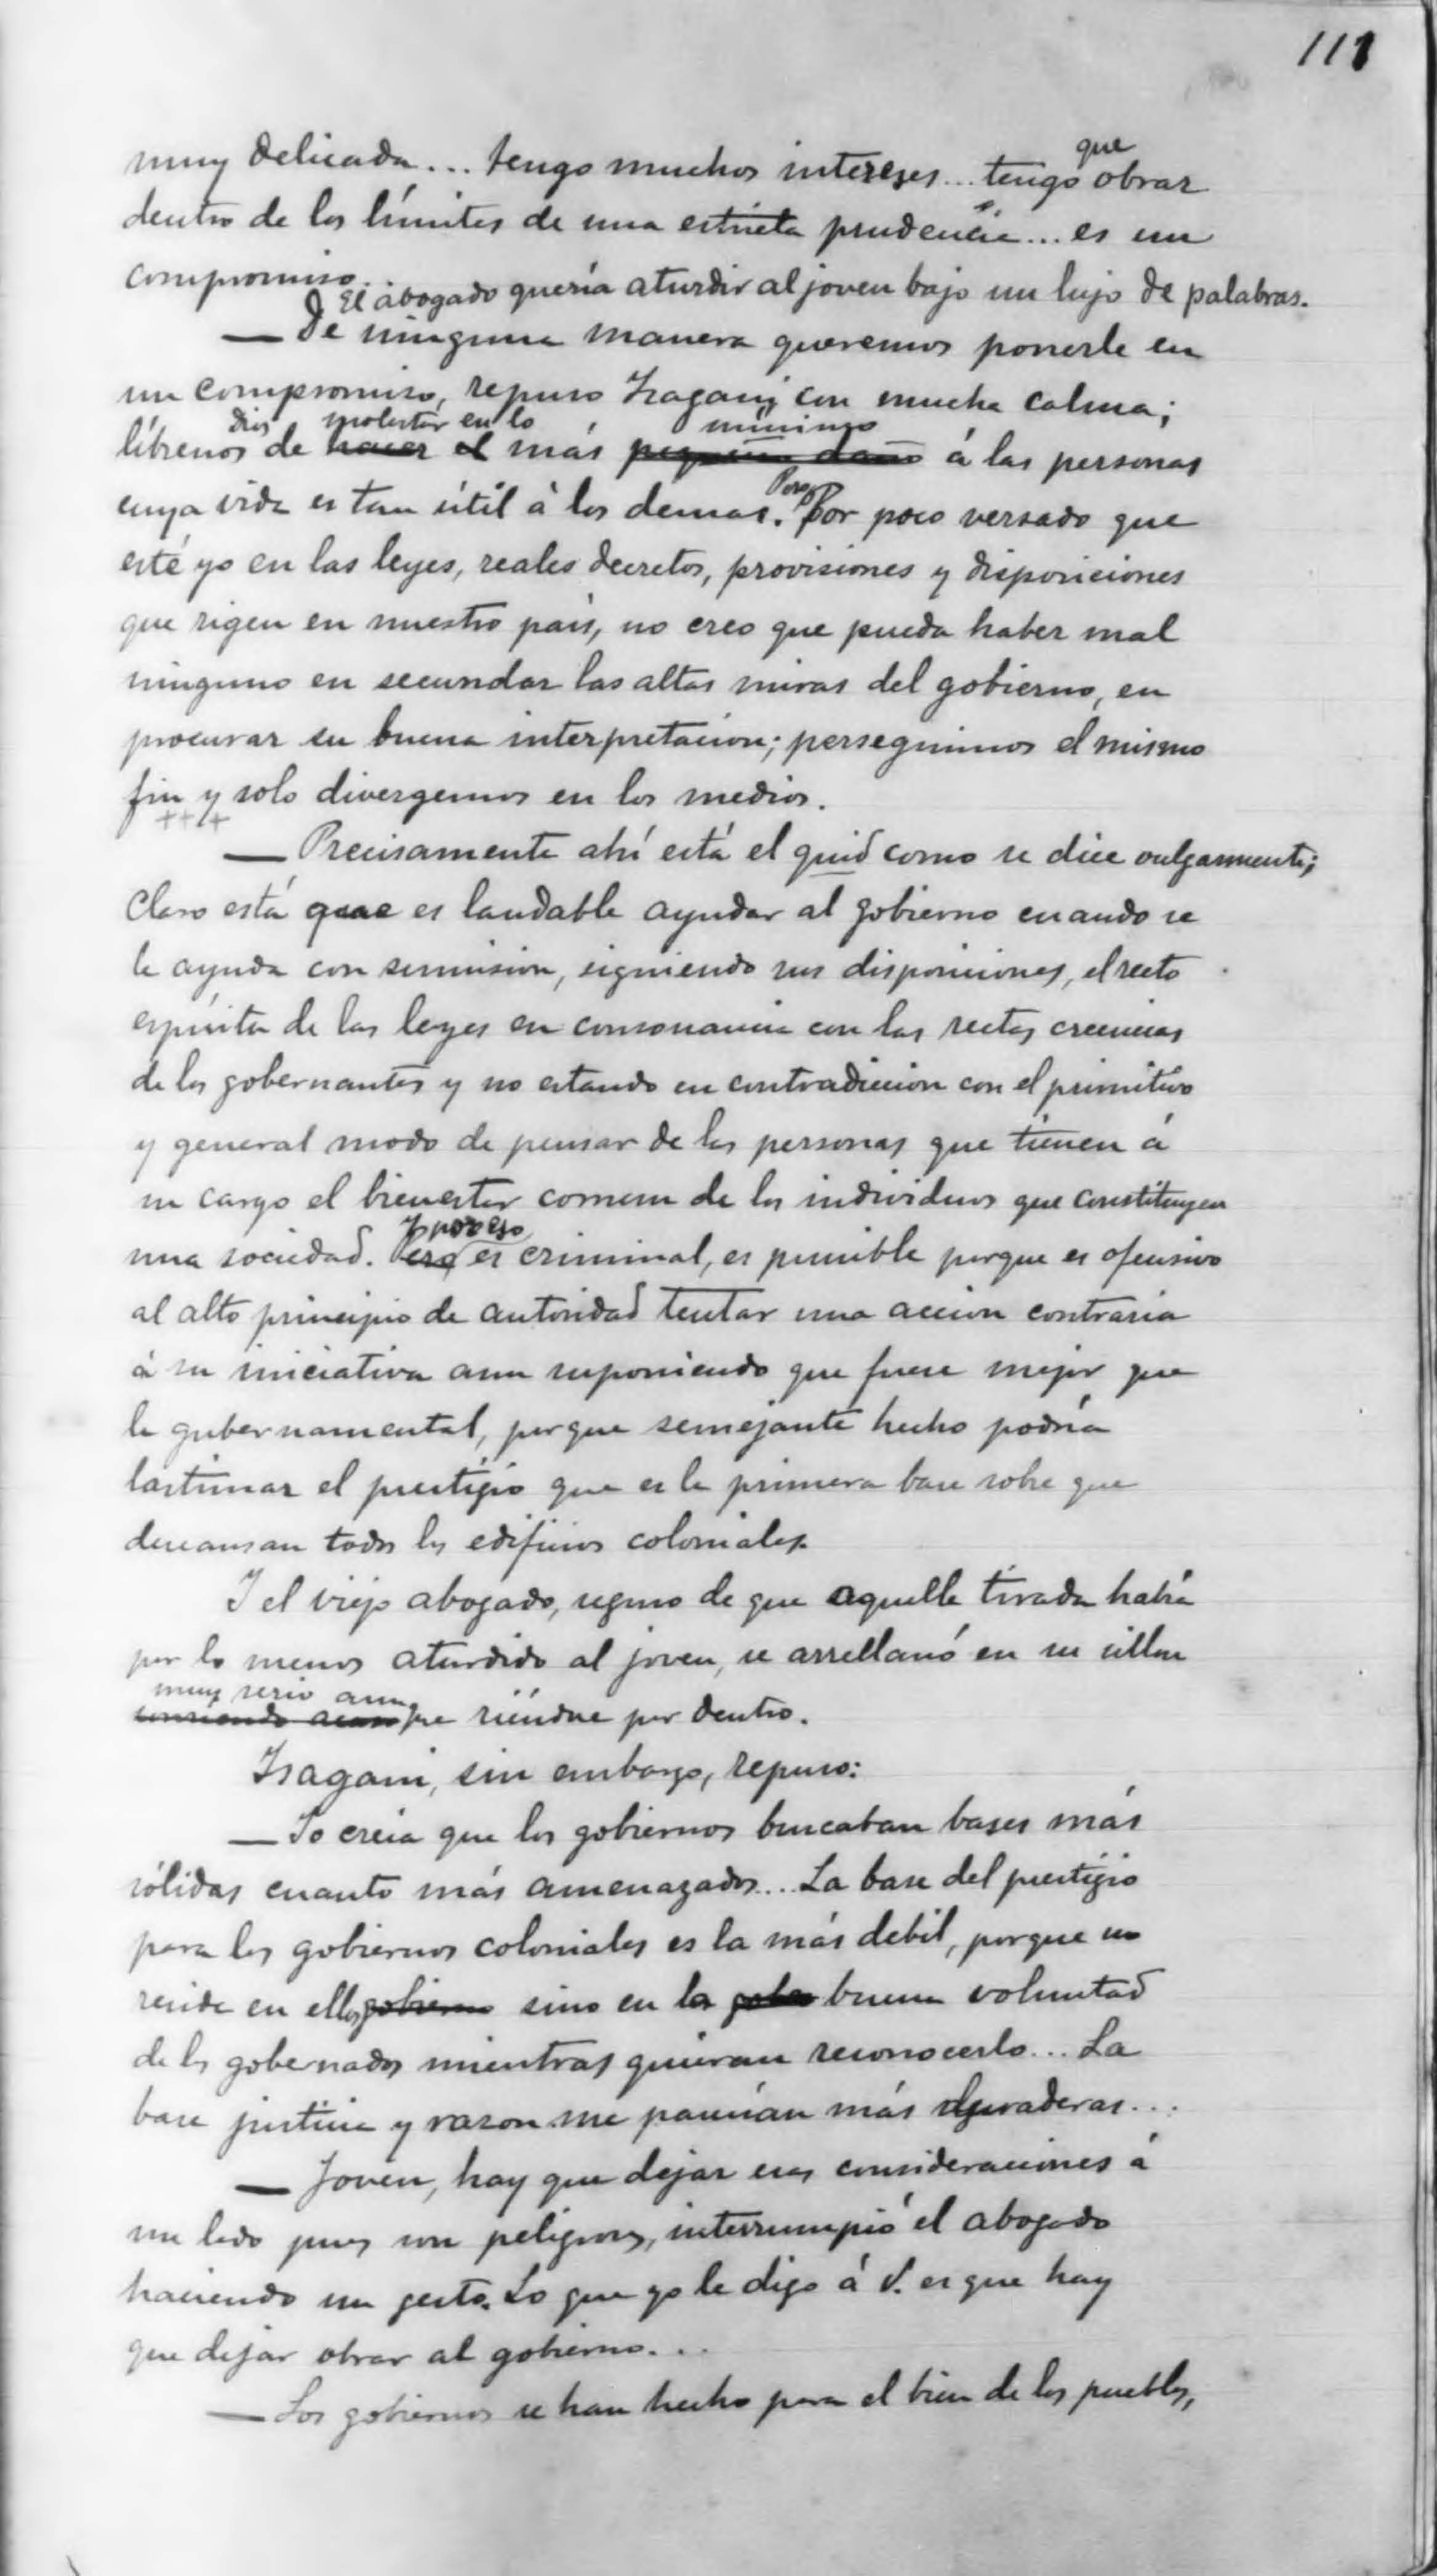 111
muy delicada... tengo muchos intereses... tengo que obrar
dentro de los límites de una estricta prudencia... es un
compromiso..
El abogado quería aturdir al joven bajo un lujo de palabras.
— De ninguna manera queremos ponerle en
un compromiso, repuso Isagani con mucha calma;
Dios molestar en lo mínimo
líbrenos de hacer el más pequeño daño á las personas
cuya vida es tan útil á los demas. Pero por poco versado que
esté yo en las leyes, reales decretos, provisiones y disposiciones
que rigen en nuestro país, no creo que pueda haber mal
ninguno en secundar las altas miras del gobierno, en
procurar su buena interpretacion; perseguimos el mismo
fin y solo divergemos en los medios.
++++
— Precisamente ahí está el quid como se dice vulgarmente;
Claro está que es laudable ayudar al gobierno cuando se
le ayuda con sumision, siguiendo sus disposiciones, el recto
espíritu de las leyes en consonancia con las rectas creencias
de los gobernantes y no estando en contradiccion con el primitivo
y general modo de pensar de las personas que tienen á
su cargo el bienestar comun de los individuos que constituyen
Y por eso
una sociedad. Pero es criminal, es punible porque es ofensivo
al alto principio de autoridad tentar una accion contraria
á su iniciativa aun suponiendo que fuese mejor que
la gubernamental, porque semejante hecho podría
lastimar el prestigio que es la primera base sobre que
descansan todos los edificios coloniales.
Y el viejo abogado, seguro de que aquella tirada había
por lo menos aturdido al joven, se arrellanó en su sillon
muy serio aun
sonriendo aunque riéndose por dentro.
Isagani, sin embargo, repuso:
— Yo creía que los gobiernos buscaban bases más
sólidas cuanto más amenazados... La base del prestigio
para los gobiernos coloniales es la más debil, porque no
reside en ellos gobierno sino en la buena voluntad
de los gobernados mientras quieran reconocerlo... La
base justicia y razon me parecían más duraderas...
— Joven, hay que dejar esas consideraciones á
un lado pues son peligrosas, interrumpió el abogado
haciendo un gesto. Lo que yo le digo á V. es que hay
que dejar obrar al gobierno...
— Los gobiernos se han hecho para el bien de los pueblos,